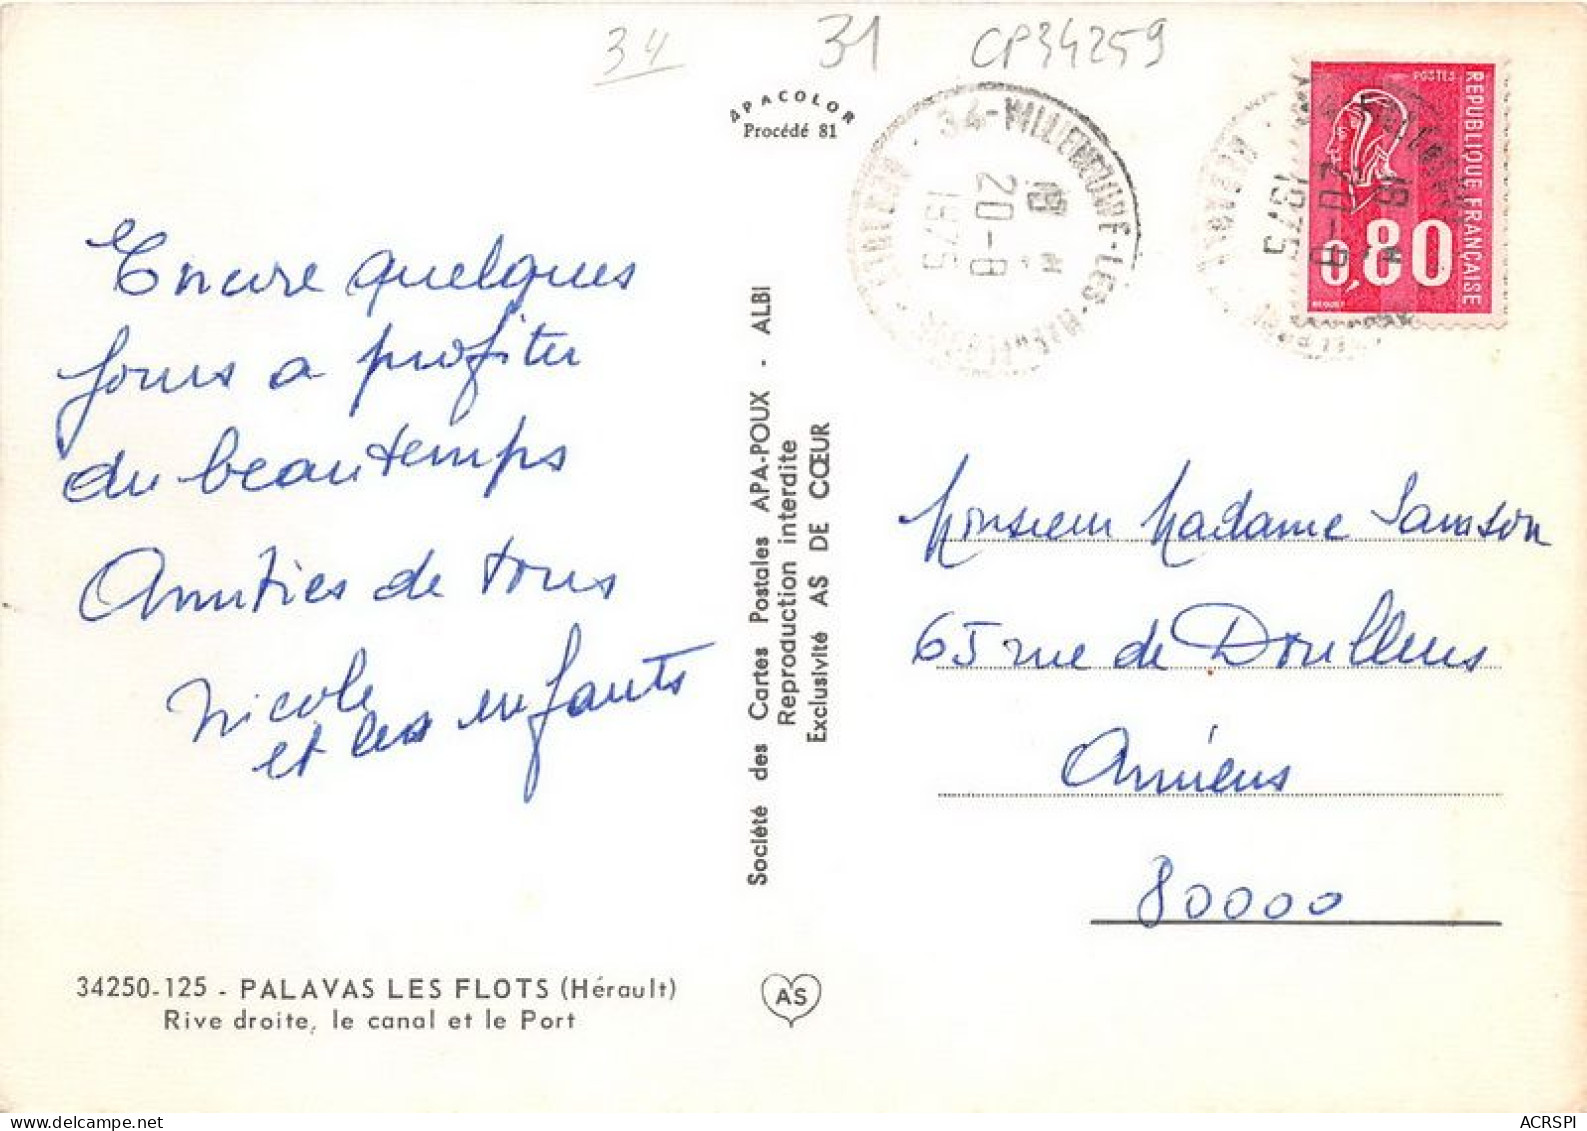 34
31
CP34259
APACOLOR
Procédé 81
34-VILLENEUVE-LES-MAGUELONNE
HERAULT
18 H
20-8
1975
18 H
20-8
1975
POSTES
REPUBLIQUE FRANÇAISE
0,80
BEQUET
Encore quelques
jours a profiter
du beau temps
Amitiés de tous
Nicole
et les enfants
Société des Cartes Postales APA-POUX - ALBI
Reproduction interdite
Exclusivité AS DE CŒUR
Monsieur Madame Samson
65 rue de Doullens
Amiens
80000
34250-125 - PALAVAS LES FLOTS (Hérault)
Rive droite, le canal et le Port
AS
ACRSPI